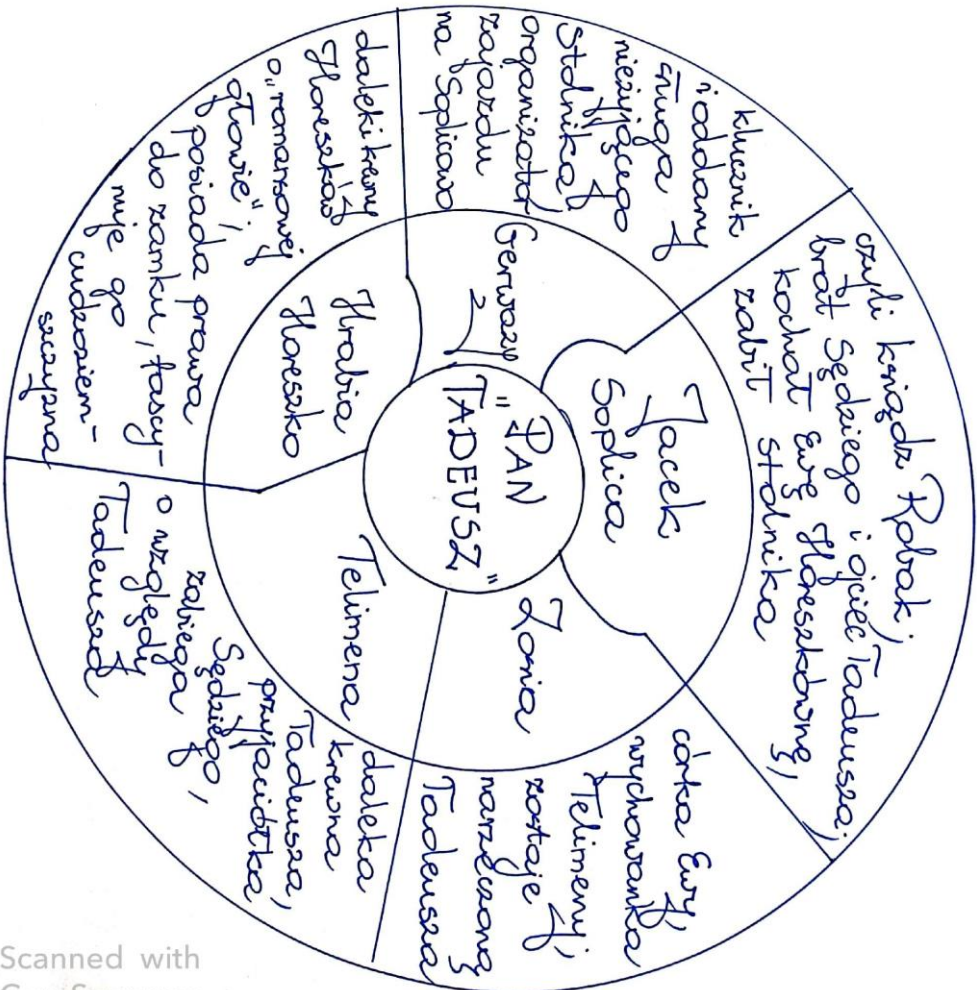 "PAN
TADEUSZ"
Jacek
Soplica
czyli ksiądz Robak;
brat Sędziego i ojciec Tadeusza;
kochał Ewę Horeszkównę,
zabił stolnika
Zosia
córka Ewy,
wychowanka
Telimeny;
zostaje
narzeczoną
Tadeusza
Telimena
daleka
krewna
Tadeusza,
przyjaciółka
Sędziego,
zabiega
o względy
Tadeusza
Hrabia
Horeszko
daleki krewny
Horeszków
o "romansowej
głowie";
posiada prawa
do zamku, fascy-
nuje go
cudzoziem-
szczyzna
Gerwazy
klucznik
i oddany
sługa
nieżyjącego
Stolnika,
organizator
zajazdu
na Soplicowo
Scanned with